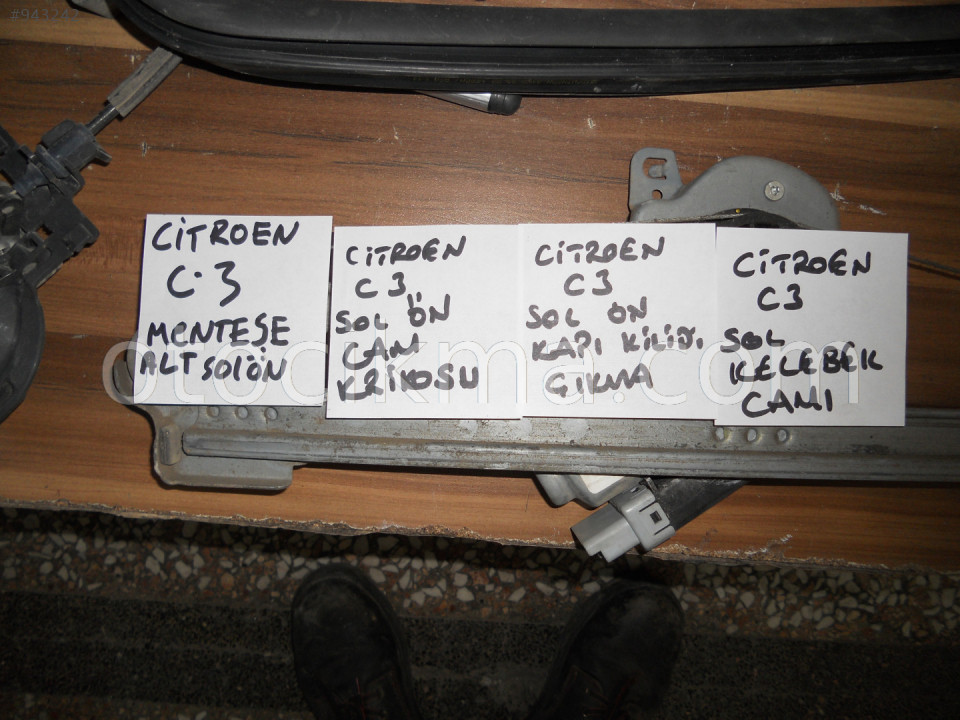 #943242
CİTROEN
C·3
MENTEŞE
ALT SOL ÖN
CİTROEN
C3
SOL ÖN
CAM
KRİKOSU
CİTROEN
C3
SOL ÖN
KAPI KİLİĞİ
ÇIKMA
CİTROEN
C3
SOL
KELEBEK
CAMI
otocikma.com